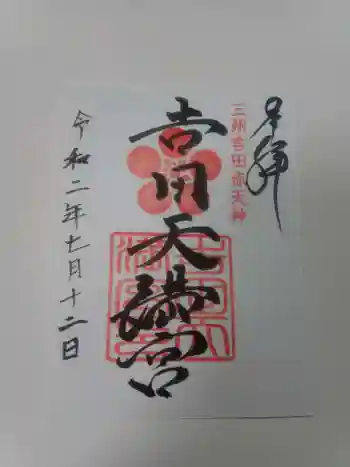 奉拝
三州吉田赤天神
吉田天満宮
令和二年七月十二日